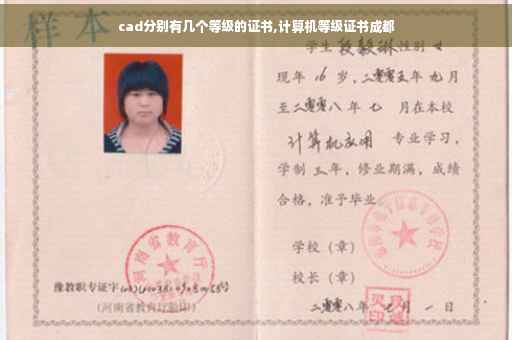 cad分别有几个等级的证书,计算机等级证书成都
样本
学生 性别 女
现年 16 岁,二零零五年 九月
至二零零八年 七 月在本校
计算机应用 专业学习,
学制 三年,修业期满,成绩
合格,准予毕业
学校(章)
校长(章)
二零零八年 七 月 一 日
河南省教育厅
豫教职专证字
(河南省教育厅验印)